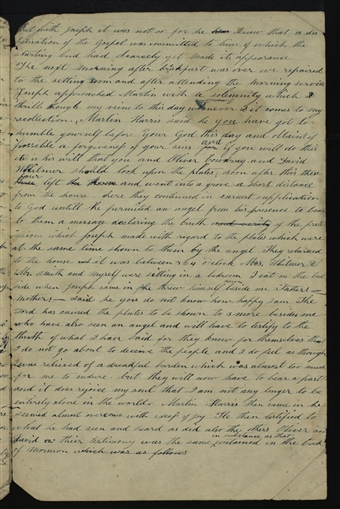 But with Joseph it was not so for he knew that a dis
pensation of the Gospel was committed to him of which the
starting bud had scarcely yet made its appearance
The next morning after breakfast was over we repaired
to the sitting room and after attending the morning service
Joseph approached Martin with a solemnity which
thrills through my veins to this day whenever it comes to my
recollection, Martin Harris said he you have got to
humble yourself before your God this day and obtain if
possible a forgiveness of your sins and if you will do this
it is his will that you and Oliver Cowdray and David
Whitmer should look upon the plates; soon after this these
four left the house and went into a grove a short distance
from the house there they continued in earnest supplication
to God untill he permitted an angel from his presence to bear
to them a message declaring the truth of the
which Joseph made with regard to the plates which was
at the same time shown to them by the angel They returned
to the house it was between 3 & 4 o'clock Mrs. Whitmer &
Mr Smith and myself were sitting in a bedroom I sat on the bed
side when Joseph came in he threw himself beside me Father!—
Mother!— said he you do not know how happy I am The
Lord has caused the plates to be shown to 3 more besides me
who have also seen an angel and will have to testify to the
truth of what I have said for they know for themselves that
I do not go about to deceive the people and I do feel as though
I was relieved of a dreadful burden which was almost too much
for me to endure but they will now have to bear a part
and it does rejoice my soul that I am not any longer to be
entirely alone in the world. Martin Harris then came in he
seemed almost overcome with excess of joy He then testified to
what he had seen and heard as did also the others Oliver and
David their testimony was the same in substance as that
contained in the book
of Mormon which was as follows